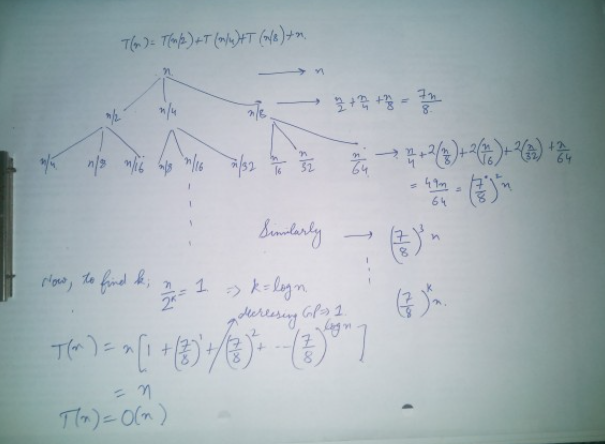 T(n) = T(n/2) + T(n/4) + T(n/8) + n
n → n
n/2 n/4 n/8 → n/2 + n/4 + n/8 = 7n/8.
n/4 n/8 n/16 n/8 n/16 n/32 n/16 n/32 n/64 → n/4 + 2(n/8) + 2(n/16) + 2(n/32) + n/64
= 49n/64 = (7/8)^2 n
Similarly → (7/8)^3 n
now, to find k, n/2^k = 1 => k = log n
(7/8)^k n.
decreasing GP => 1
T(n) = n [1 + (7/8)^1 + (7/8)^2 + --- (7/8)^log n]
= n
T(n) = O(n)